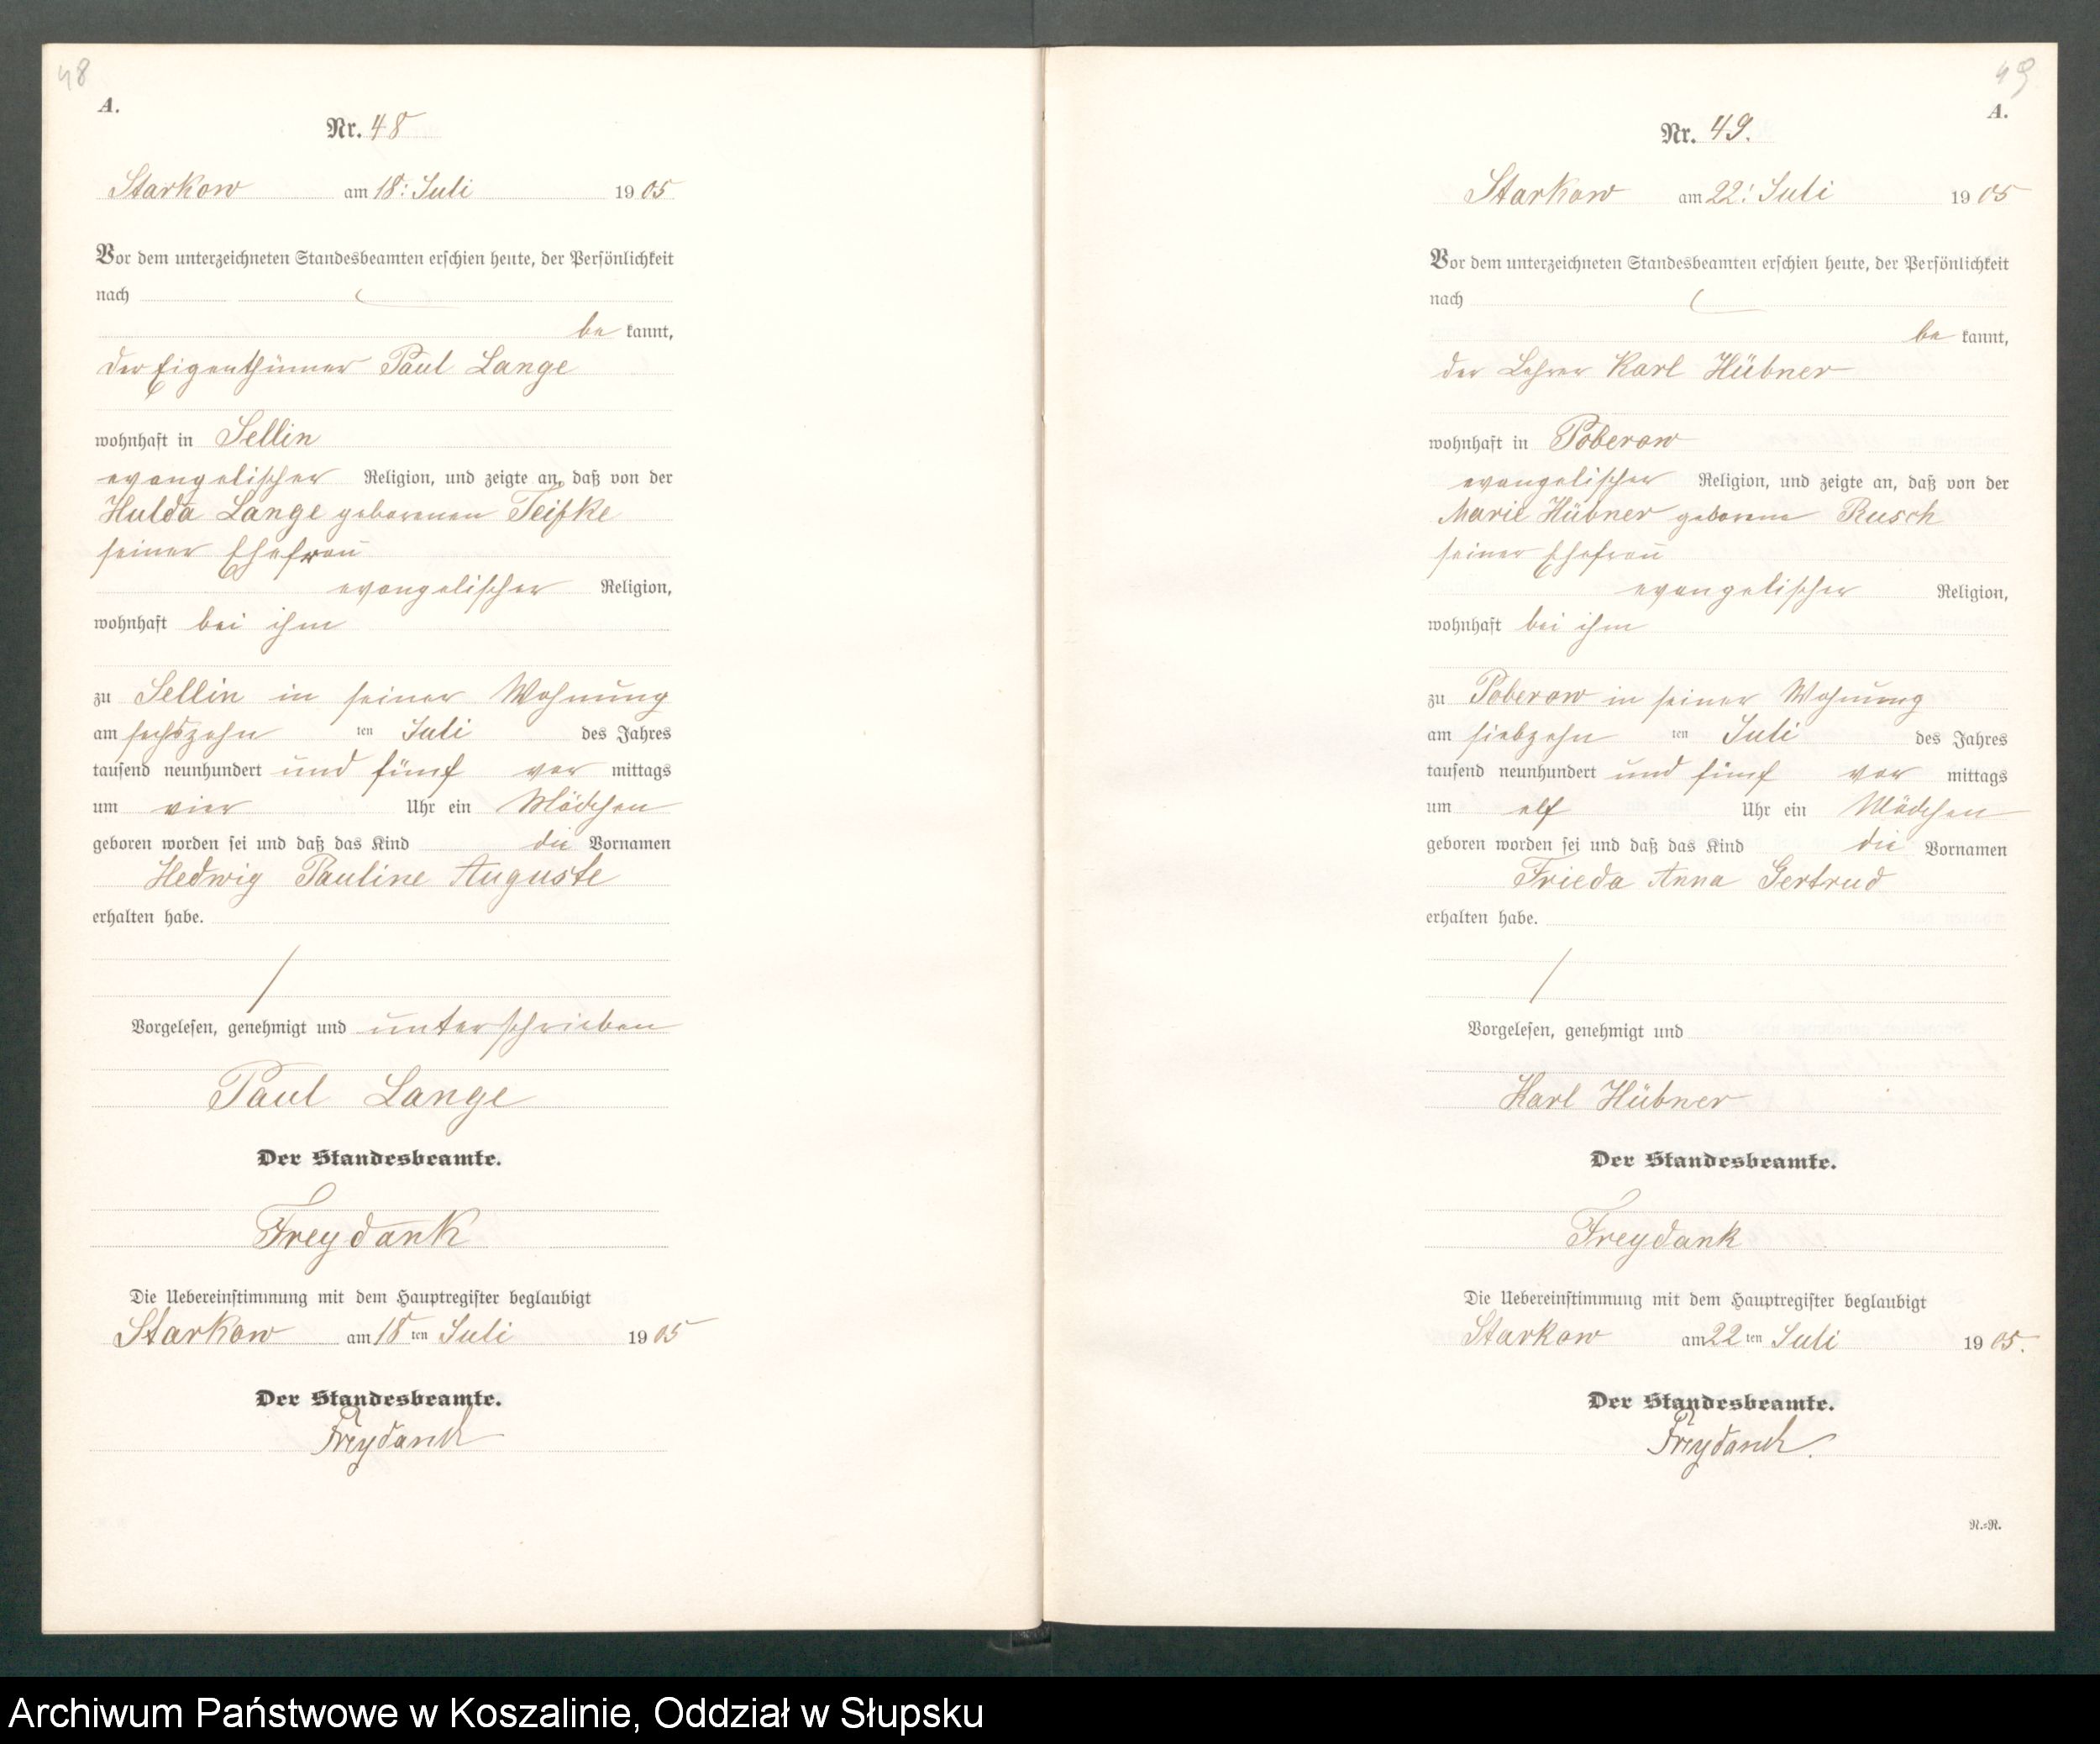 48
A.
Nr. 48
Starkow am 18. Juli 1905
Vor dem unterzeichneten Standesbeamten erschien heute, der Persönlichkeit
nach
be kannt,
der Eigenthümer Paul Lange
wohnhaft in Sellin
evangelischer Religion, und zeigte an, daß von der
Hulda Lange geborenen Teifke
seiner Ehefrau
evangelischer Religion,
wohnhaft bei ihm
zu Sellin in seiner Wohnung
am sechszehn ten Juli des Jahres
tausend neunhundert und fünf vor mittags
um vier Uhr ein Mädchen
geboren worden sei und daß das Kind die Vornamen
Hedwig Pauline Auguste
erhalten habe.
Vorgelesen, genehmigt und unterschrieben
Paul Lange
Der Standesbeamte.
Freydank
Die Uebereinstimmung mit dem Hauptregister beglaubigt
Starkow am 18 ten Juli 1905
Der Standesbeamte.
Freydank
49
A.
Nr. 49.
Starkow am 22. Juli 1905
Vor dem unterzeichneten Standesbeamten erschien heute, der Persönlichkeit
nach
be kannt,
der Lehrer Karl Hübner
wohnhaft in Poberow
evangelischer Religion, und zeigte an, daß von der
Marie Hübner geborene Rusch
seiner Ehefrau
evangelischer Religion,
wohnhaft bei ihm
zu Poberow in seiner Wohnung
am siebzehn ten Juli des Jahres
tausend neunhundert und fünf vor mittags
um elf Uhr ein Mädchen
geboren worden sei und daß das Kind die Vornamen
Frieda Anna Gertrud
erhalten habe.
Vorgelesen, genehmigt und
Karl Hübner
Der Standesbeamte.
Freydank
Die Uebereinstimmung mit dem Hauptregister beglaubigt
Starkow am 22 ten Juli 1905.
Der Standesbeamte.
Freydank.
R.-R.
Archiwum Państwowe w Koszalinie, Oddział w Słupsku